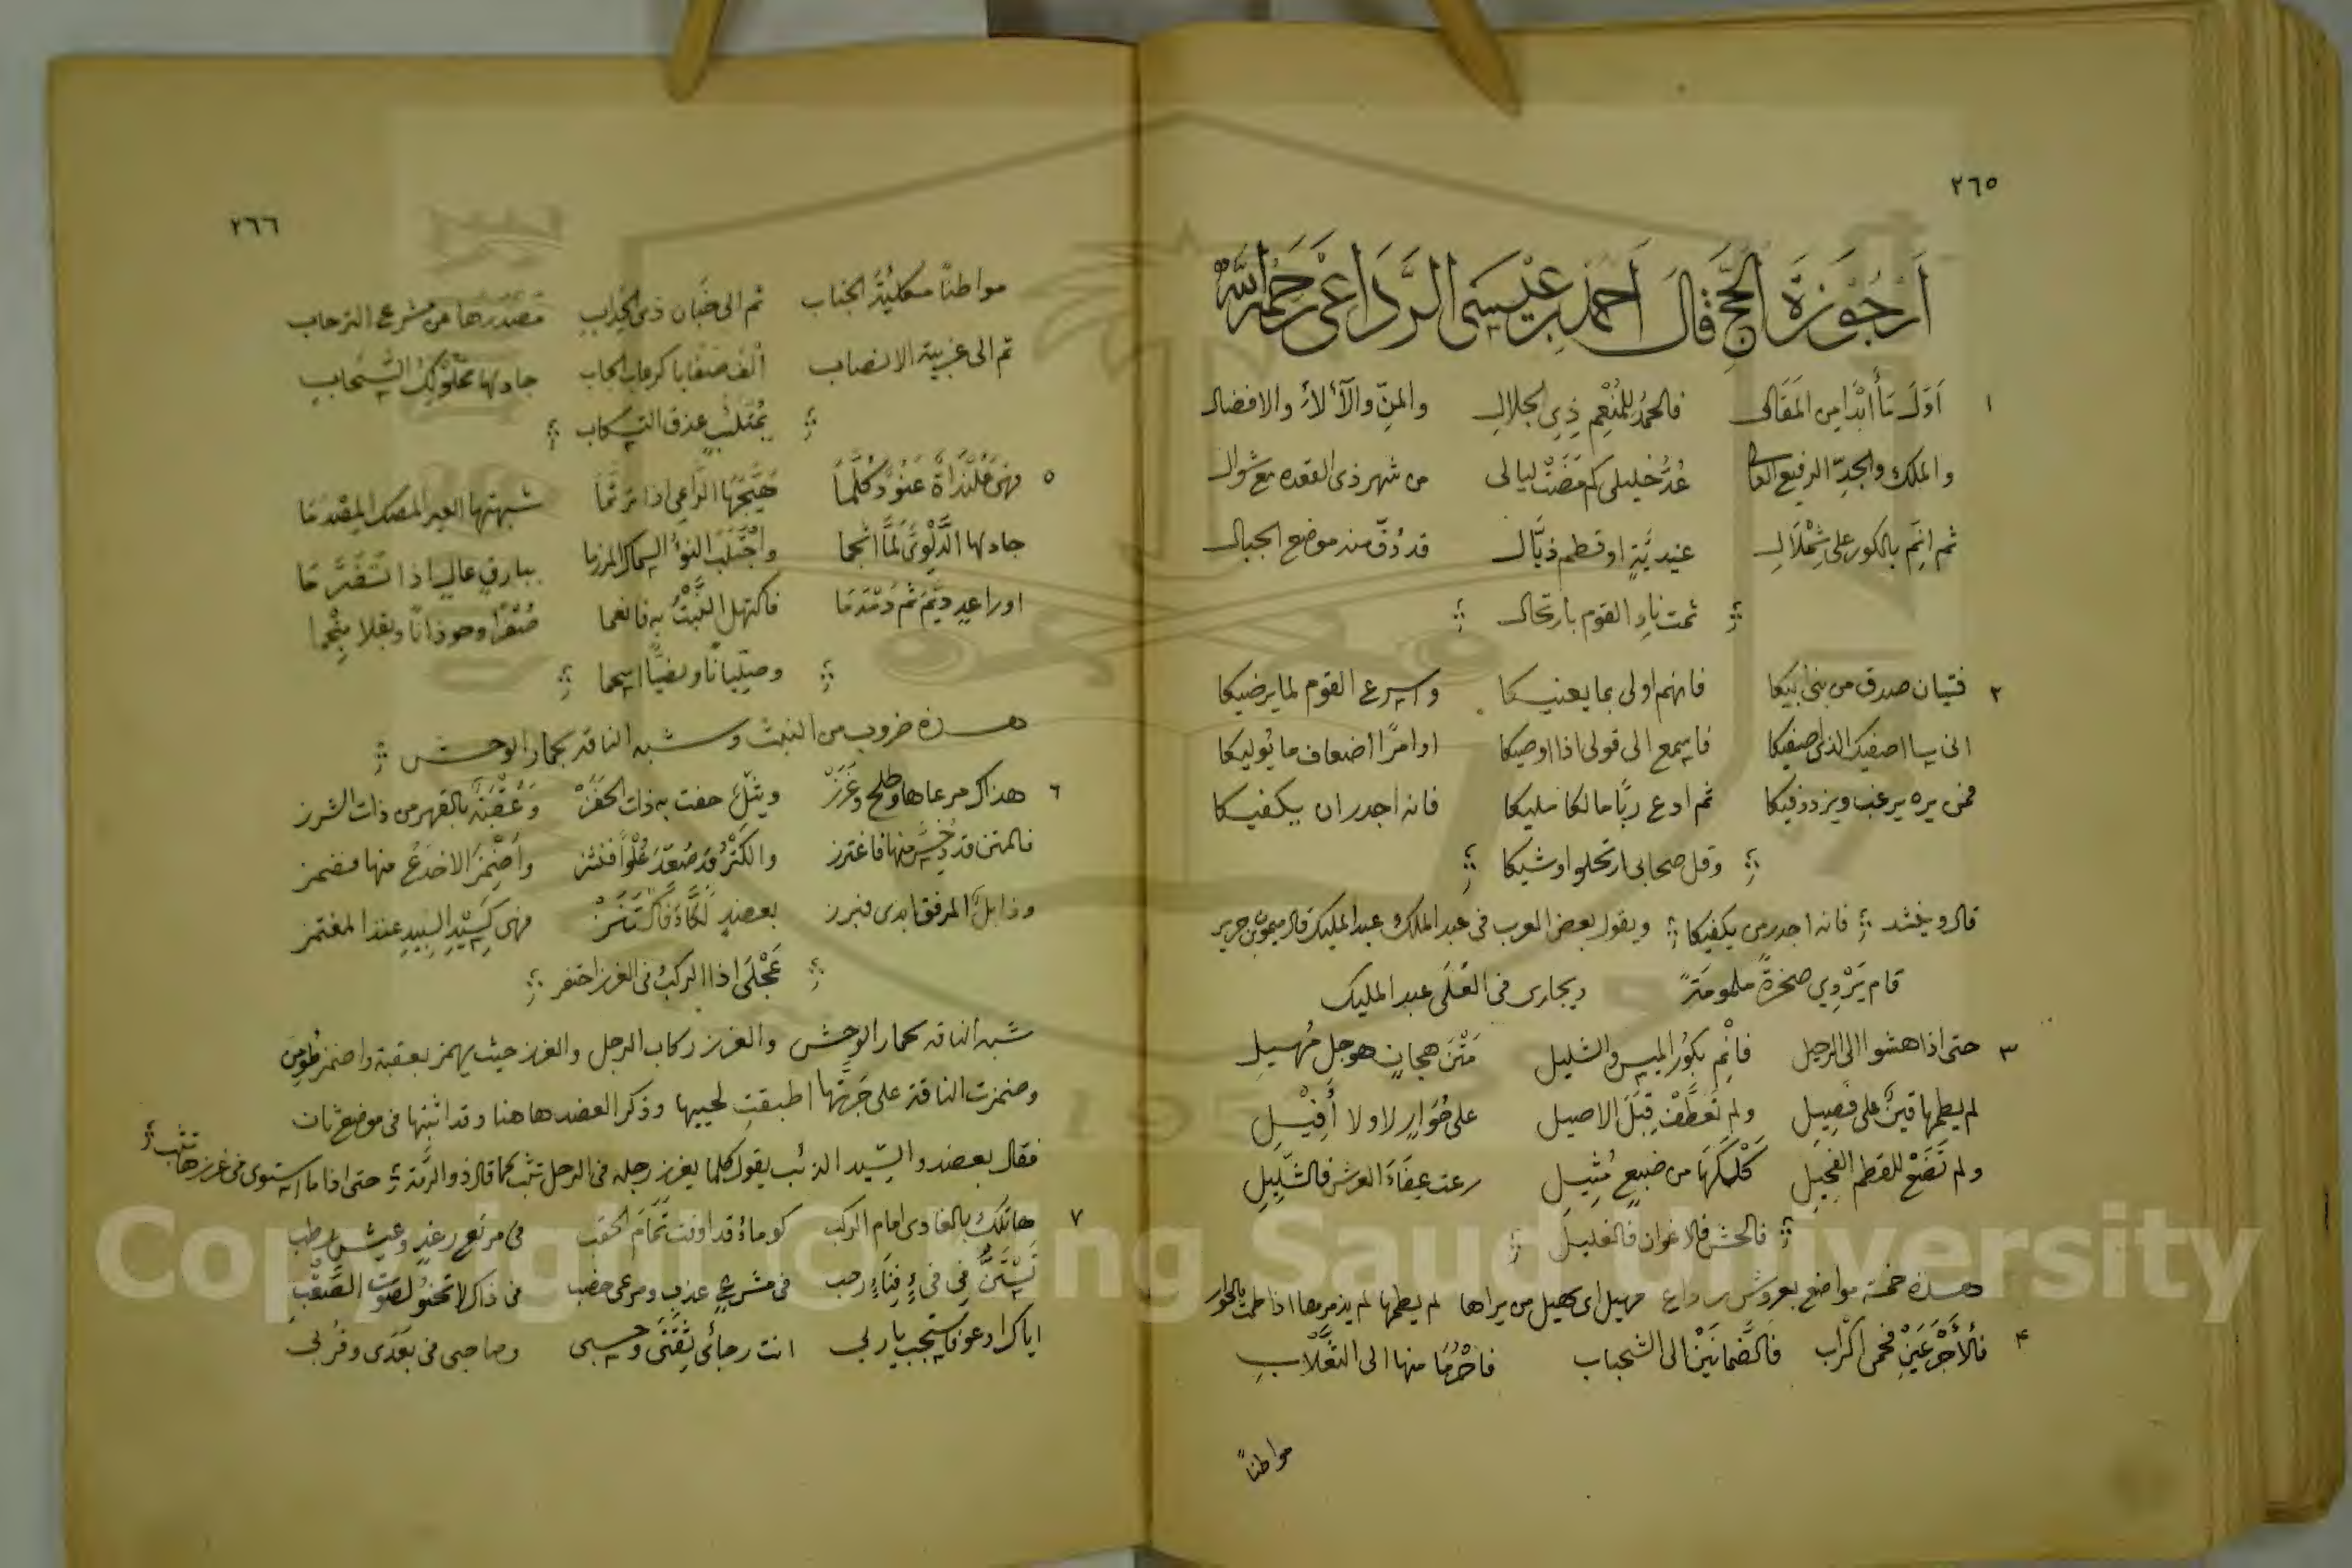 ٢٦٥
اَرْجُوْزَةُ الحَجِّ قَالَ اَحمَدُ بنِ عِيْسَى الرَّدَاعِىّ رَحِمَهُ اللّٰه
١ اَوّلَ مَا أَبْدَا مِن المَقَالى فالحمدُ للمُنْعِمِ ذِي الجلالِ والمنِّ والآلاءِ والافضالـ
والملكِ والجدِّ الرفيع العالى عُدَّ خليلى كم مَضَتْ ليالى من شهر ذى القعده مع شوالـ
ثم انِمِ بالكور على شِمْلَالِ عيديَّةٍ او قطم ذيّالـ قد دُفّ منه موضع الجبالـ
ثمت نادِ القوم بارتحالـ
٢ فتيان صدق من بنى ابيكا فانهم اولى بما يعنيكا واسرع القوم لما يرضيكا
انى بها اصفيك الذى اصفيكا فاسمع الى قولى اذا اوصيكا اوامرًا اضعاف ما يوليكا
فمن يره يرغب ويزدد فيكا ثم ادع ربًّا مالكا مليكا فانه اجدر ان يكفيكا
وقل صحابى ارتحلوا وشيكا
قال وينشد فانه اجدر من يكفيكا ويقول بعض العرب فى عبد الملك عبد المليك قال ميمون بن حرير
قام يَرْدِي صخرةً ملمومَةً ويجارى فى العُلَى عبد المليك
٣ حتى اذا هشوا الى الرحيل فانْمِ بكُور الميس والشليل مَتْنَ هجانٍ هوجل مُهيلِ
لم يطمها قينٌ على فصِيلِ ولم تَعَطَّفْ قِبَلَ الاصيل على حُوَارٍ لا ولا أَفِيْلِ
ولم تَضَعْ للقطم الفحِيل كَلْكَلَهَا من ضبيعٍ مُثِيلِ رعت عِفَاءَ العرش فالشَّلِيلِ
فالحشِ فالاغوان فالغليلـ
هذه خمسة مواضع بعروش رداع مهيل اى يهيل من يراها لم يطمها لم يذمرها اذا حلت بالحوار
٤ فالأَجْرَعَيْنِ فحمى اكْراب فالضَمانَيْن الى الشجباب فاحْرُمَا منها الى الثَعْلَابِ
مواطنًا
٢٦٦
مواطنًا مكليَةَ الجناب ثم الى خَبَان ذى الحِدابِ مصدرها من مشرع الترحاب
ثم الى غربية الانصاب الف صَفَايا كرعاب الحاب جادها محلَوْلِكُ السَّحابِ
بمَتلثبٍ غدق التسكاب
٥ فهى عَلَنْدَاةٌ عَنُودٌ كلَّما هَيَّجَهَا الراعى اذا ترنّما شبهتها العير المصك المِصْدَمَا
جادها الدَّلْوِىُّ لمَّا انْجما واجْتَلَبَ النوءُ السماك المرزما ببارق عالٍ اذا تَضَرَّمَا
او راعدٍ ديَّمَ ثم دَمْدَمَا فاكتهل النَّبْتُ به فانعما صُفْرًا وحوذانًا وبقلا مِنْجما
وصِلّيانًا ونصيًّا اسحما
هذه ضروب من النبت وشبه الناقه بحمار الوحش
٦ هذاك مرعاها وطلح وغَرَزْ ويَنَلُّ حفت به ذات الحَفَزْ وَعُقْبَة بالقهر من ذات الشرز
فالمتن قد دُخِّس منها فاغترز والكَتْرُ قد صَعَّدَ عُلْوًا فنشز واَضمَز الاخدعُ منها فضمز
وذابلُ المرفق ابدى فبرز بعضدٍ لَكَّاءَ فَالتَنْـزْ فهى كَسِيْدِ السِيدِ عند المغتمز
عَجْلَى اذا الركبُ فى الغرز احتفز
شبه الناقه بحمار الوحش والغرز ركاب الرجل والغرز حيث يهمز بعقبة واضمز طُوِمِن
وضمزت الناقة على جَرَّتها اطبقت لحييها وذكر العضد هاهنا وقد اثبتها فى موضع ثان
فقال بعضد والسّيد الذئب يقول كلما يغرز رجله فى الرحل تثب كما قال ذو الرُّمّة حتى اذا ما استوى فى غرزها تثب
٧ هاتلك بالغادى امام الركب كوماءُ قد اوفت تمامَ الحقب فى مرتعٍ رغدٍ وعيش رطب
تَسْتَنُّ فى فىءٍ فِنَاءٍ رحب فى مشرعٍ عذب ومرعى خصب فى ذاك لا تحنُو لصوت السَّقْبِ
اياك ادعو فاستجب يا ربى انت رجائى ثِقَتى وحسبى وصاحبى فى بَعَدى وقُربى
Copyright © King Saud University